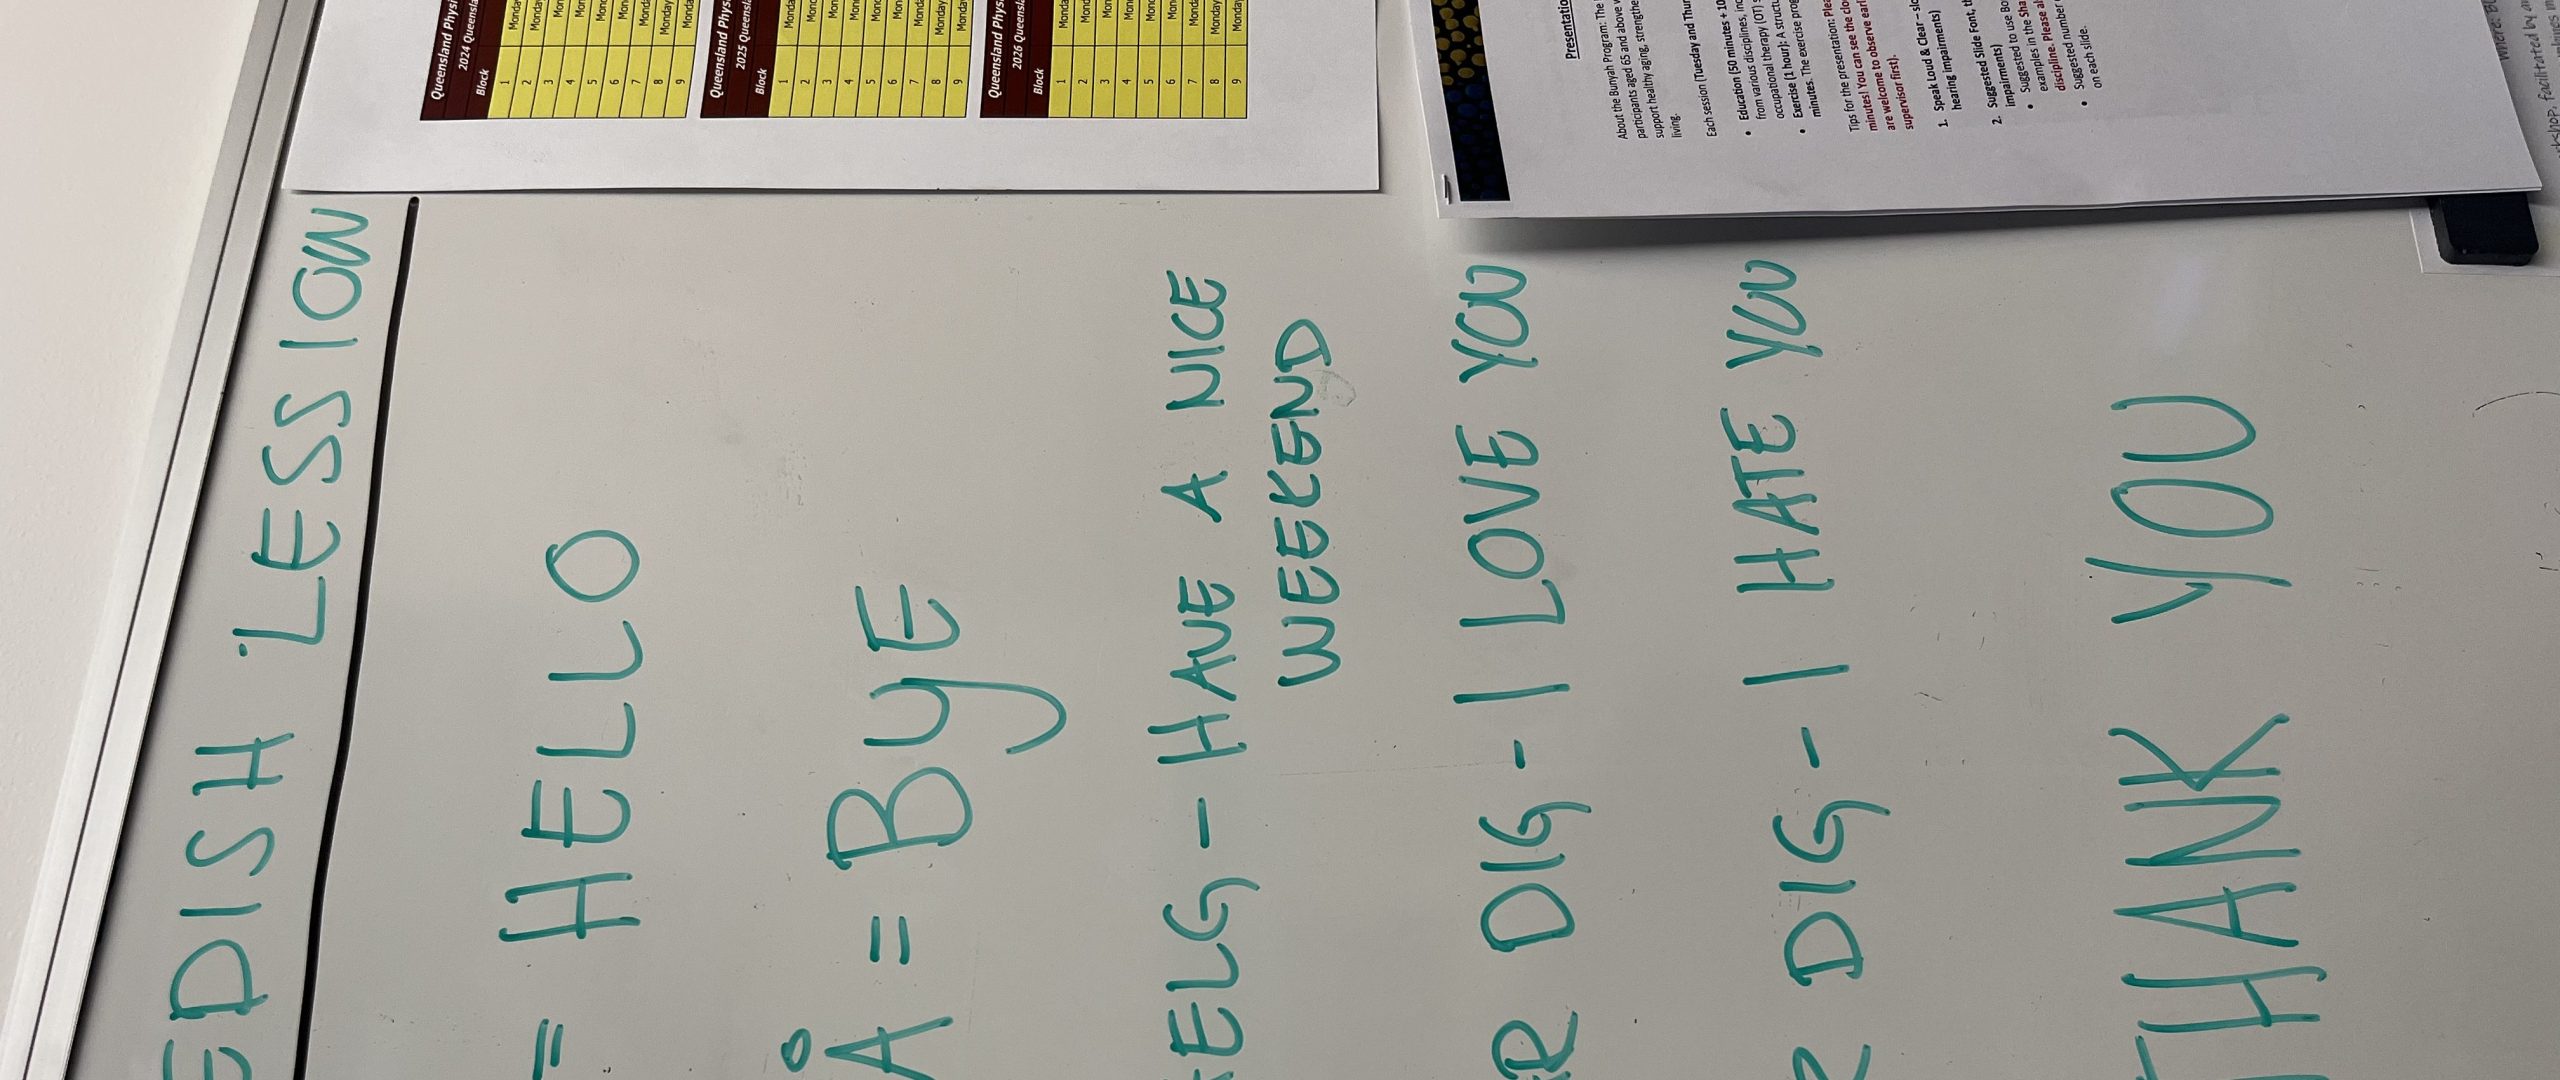 EDISH LESSION
= HELLO
Å = BYE
ELG - HAVE A NICE
WEEKEND
R DIG - I LOVE YOU
R DIG - I HATE YOU
THANK YOU
Queensland Physi
2024 Queensla
Block
1 Monday
2 Monday
3 Mon
4 Mon
5 Mond
6 Mon
7 Monda
8 Monday
9 Monda
Queensland Phys
2025 Queensl
Block
1 Monda
2 Mond
3 Mon
4 Mon
5 Mond
6 Mon
7 Mond
8 Monday
9 Monda
Queensland Phys
2026 Queensla
Block
1 Monda
2 Mond
3 Mon
4 Mon
5 Mond
6 Mon
7 Monda
8 Monday
9 Monday
Presentatio
About the Bunyah Program: The
participants aged 65 and above
support healthy aging, strengthe
living.
Each session (Tuesday and Thur
• Education (50 minutes + 10
from various disciplines, inc
occupational therapy (OT)
• Exercise (1 hour): A structu
minutes. The exercise prog
Tips for the presentation: Plea
minutes! You can see the clo
are welcome to observe earl
supervisor first).
1. Speak Loud & Clear – slo
hearing impairments)
2. Suggested Slide Font, th
impairments)
• Suggested to use Bo
examples in the Sha
discipline. Please al
• Suggested number
on each slide.
facilitated by